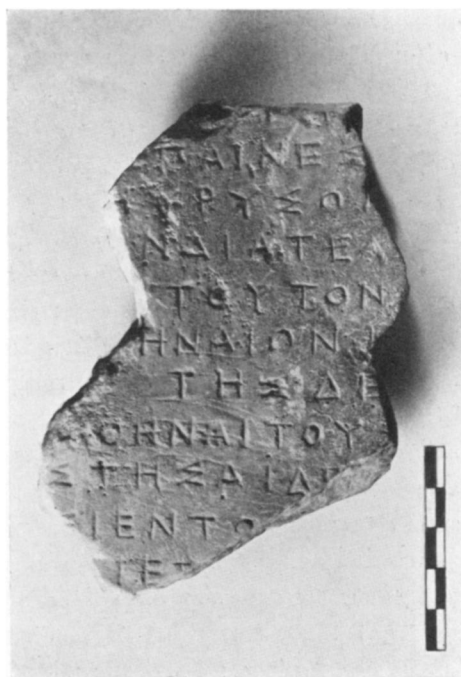 ΤΟ
ΠΑΙΝΕΣ
ΡΥΣΩΙ
ΝΔΙΑΤΕΛ
ΤΟΥΤΟΝ
ΗΝΑΙΩΝ
ΤΗΣΔΕ
ΘΗΝΑΙΤΟΥ
ΣΤΗΣΑΙΔ
ΙΕΝΤΟ
ΤΕ